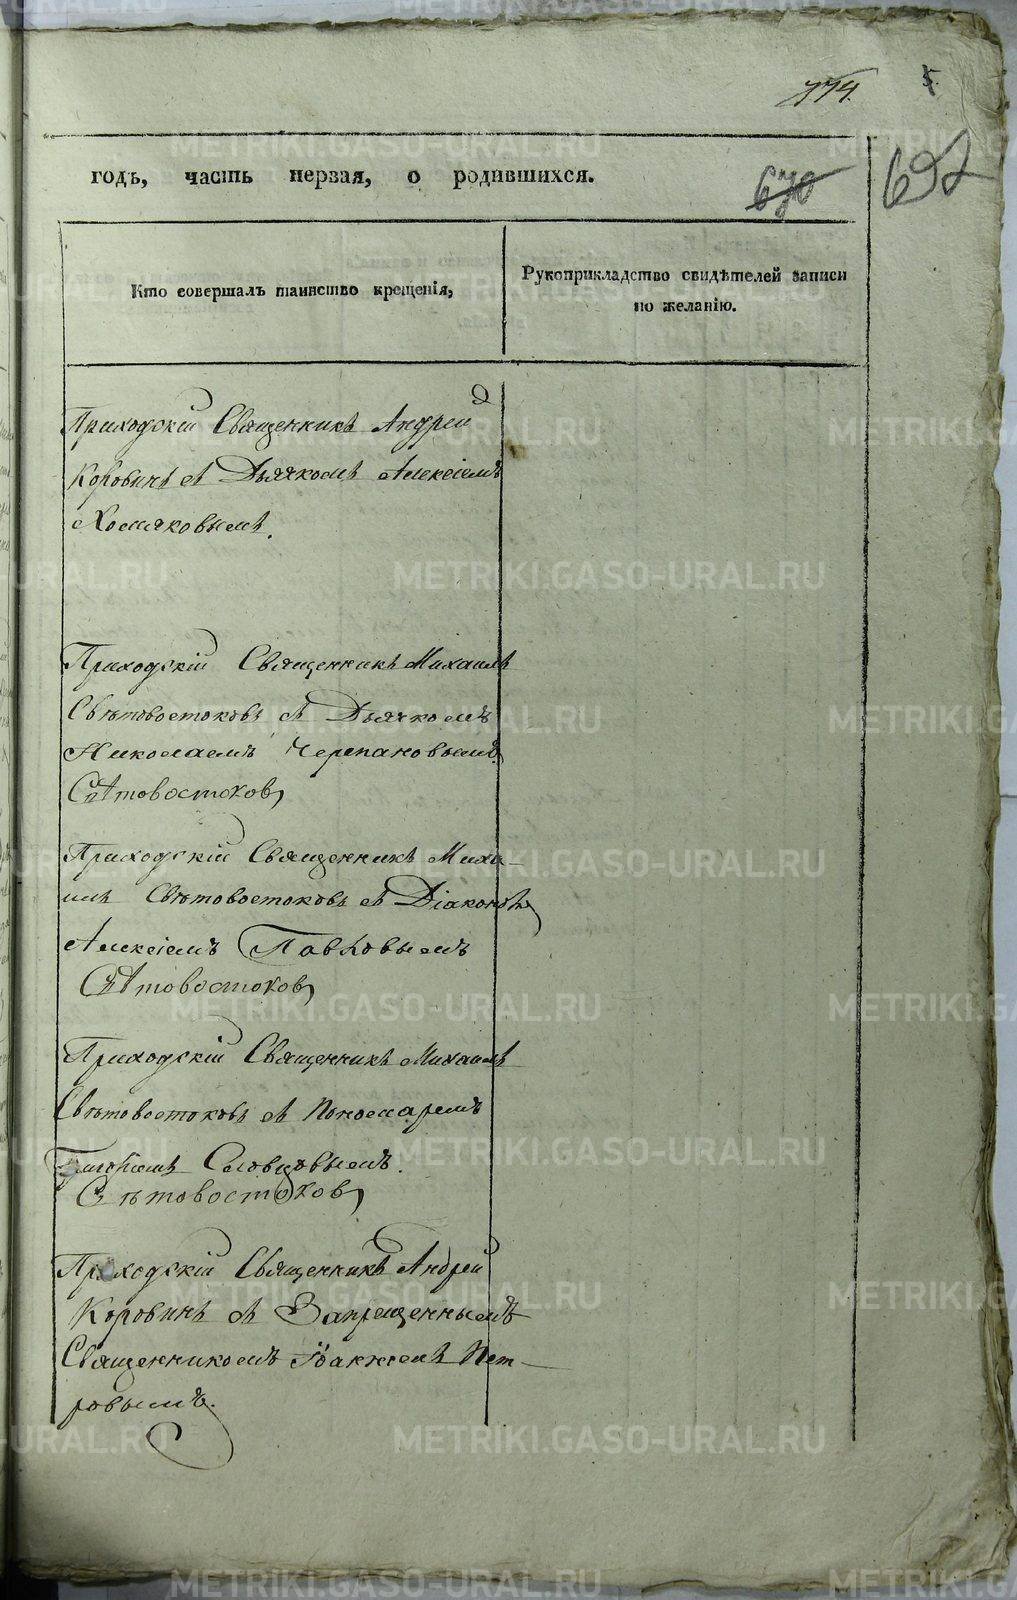 174. 5.
годъ, часть первая, о родившихся. 670 692
Кто совершалъ таинство крещенія,
Рукоприкладство свидѣтелей записи
по желанію.
Приходскій Священникъ Андрей
Коровинъ съ Дьячкомъ Алексіемъ
Хомяковымъ.
Приходскій Священникъ Михаилъ
Свѣтовостоковъ съ Дьячкомъ
Николаемъ Черепановымъ
Свѣтовостоковъ
Приходскій Священникъ Миха-
илъ Свѣтовостоковъ съ Діакономъ
Алексіемъ Павловымъ
Свѣтовостоковъ
Приходскій Священникъ Михаилъ
Свѣтовостоковъ съ Пономаремъ
Григоріемъ Словцовымъ.
Свѣтовостоковъ
Приходскій Священникъ Андрей
Коровинъ съ Запрещеннымъ
Священникомъ Іоанномъ Пет-
ровымъ.
METRIKI.GASO-URAL.RU